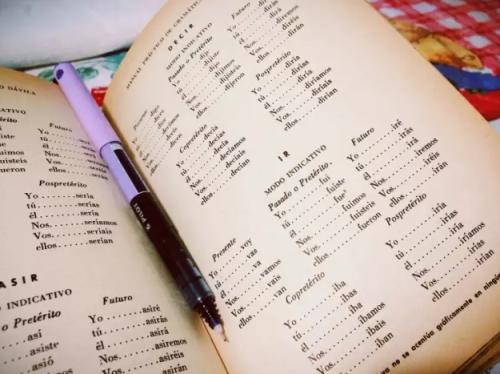 DÁVILA
Futuro
Yo
tú
él
Nos.
Vos.
ellos.
Pospretérito
Yo.......sería
tú.......serías
él.......sería
Nos.....seríamos
Vos.....seríais
ellos.....serían
ASIR
MODO INDICATIVO
o Pretérito
así
asiste
asió
Futuro
Yo.......asiré
tú.......asirás
él.......asirá
Nos.....asiremos
Vos.....asiréis
ellos.....asirán
MANUAL PRÁCTICO DE GRAMÁTICA
DECIR
MODO INDICATIVO
Presente
Yo.......digo
tú.......dices
él.......dice
Nos.....decimos
Vos.....decís
ellos.....dicen
Pasado o Pretérito
Yo.......dije
tú.......dijiste
él.......dijo
Nos.....dijimos
Vos.....dijisteis
ellos.....dijeron
Futuro
Yo.......diré
tú.......dirás
él.......dirá
Nos.....diremos
Vos.....diréis
ellos.....dirán
Copretérito
Yo.......decía
tú.......decías
él.......decía
Nos.....decíamos
Vos.....decíais
ellos.....decían
Pospretérito
Yo.......diría
tú.......dirías
él.......diría
Nos.....diríamos
Vos.....diríais
ellos.....dirían
IR
MODO INDICATIVO
Presente
Yo.......voy
tú.......vas
él.......va
Nos.....vamos
Vos.....vais
ellos.....van
Pasado o Pretérito
Yo.......fui
tú.......fuiste
él.......fue
Nos.....fuimos
Vos.....fuisteis
ellos.....fueron
Futuro
Yo.......iré
tú.......irás
él.......irá
Nos.....iremos
Vos.....iréis
ellos.....irán
Copretérito
Yo.......iba
tú.......ibas
él.......iba
Nos.....íbamos
Vos.....ibais
ellos.....iban
Pospretérito
Yo.......iría
tú.......irías
él.......iría
Nos.....iríamos
Vos.....iríais
ellos.....irían
no se acentúa gráficamente en ningun
PILOT